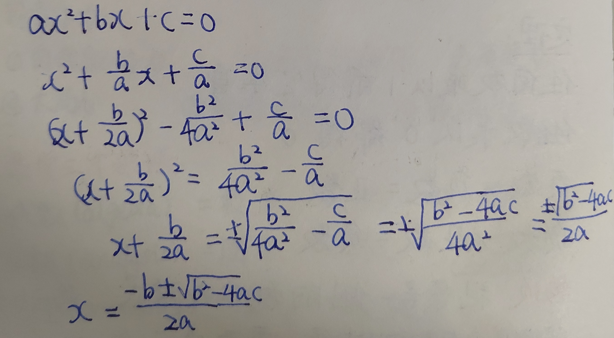 ax²+bx+c=0
x² + b/a x + c/a = 0
(x + b/2a)² - b²/4a² + c/a = 0
(x + b/2a)² = b²/4a² - c/a
x + b/2a = ±√(b²/4a² - c/a) = ±√((b²-4ac)/4a²) = ±√(b²-4ac)/2a
x = (-b±√(b²-4ac))/2a